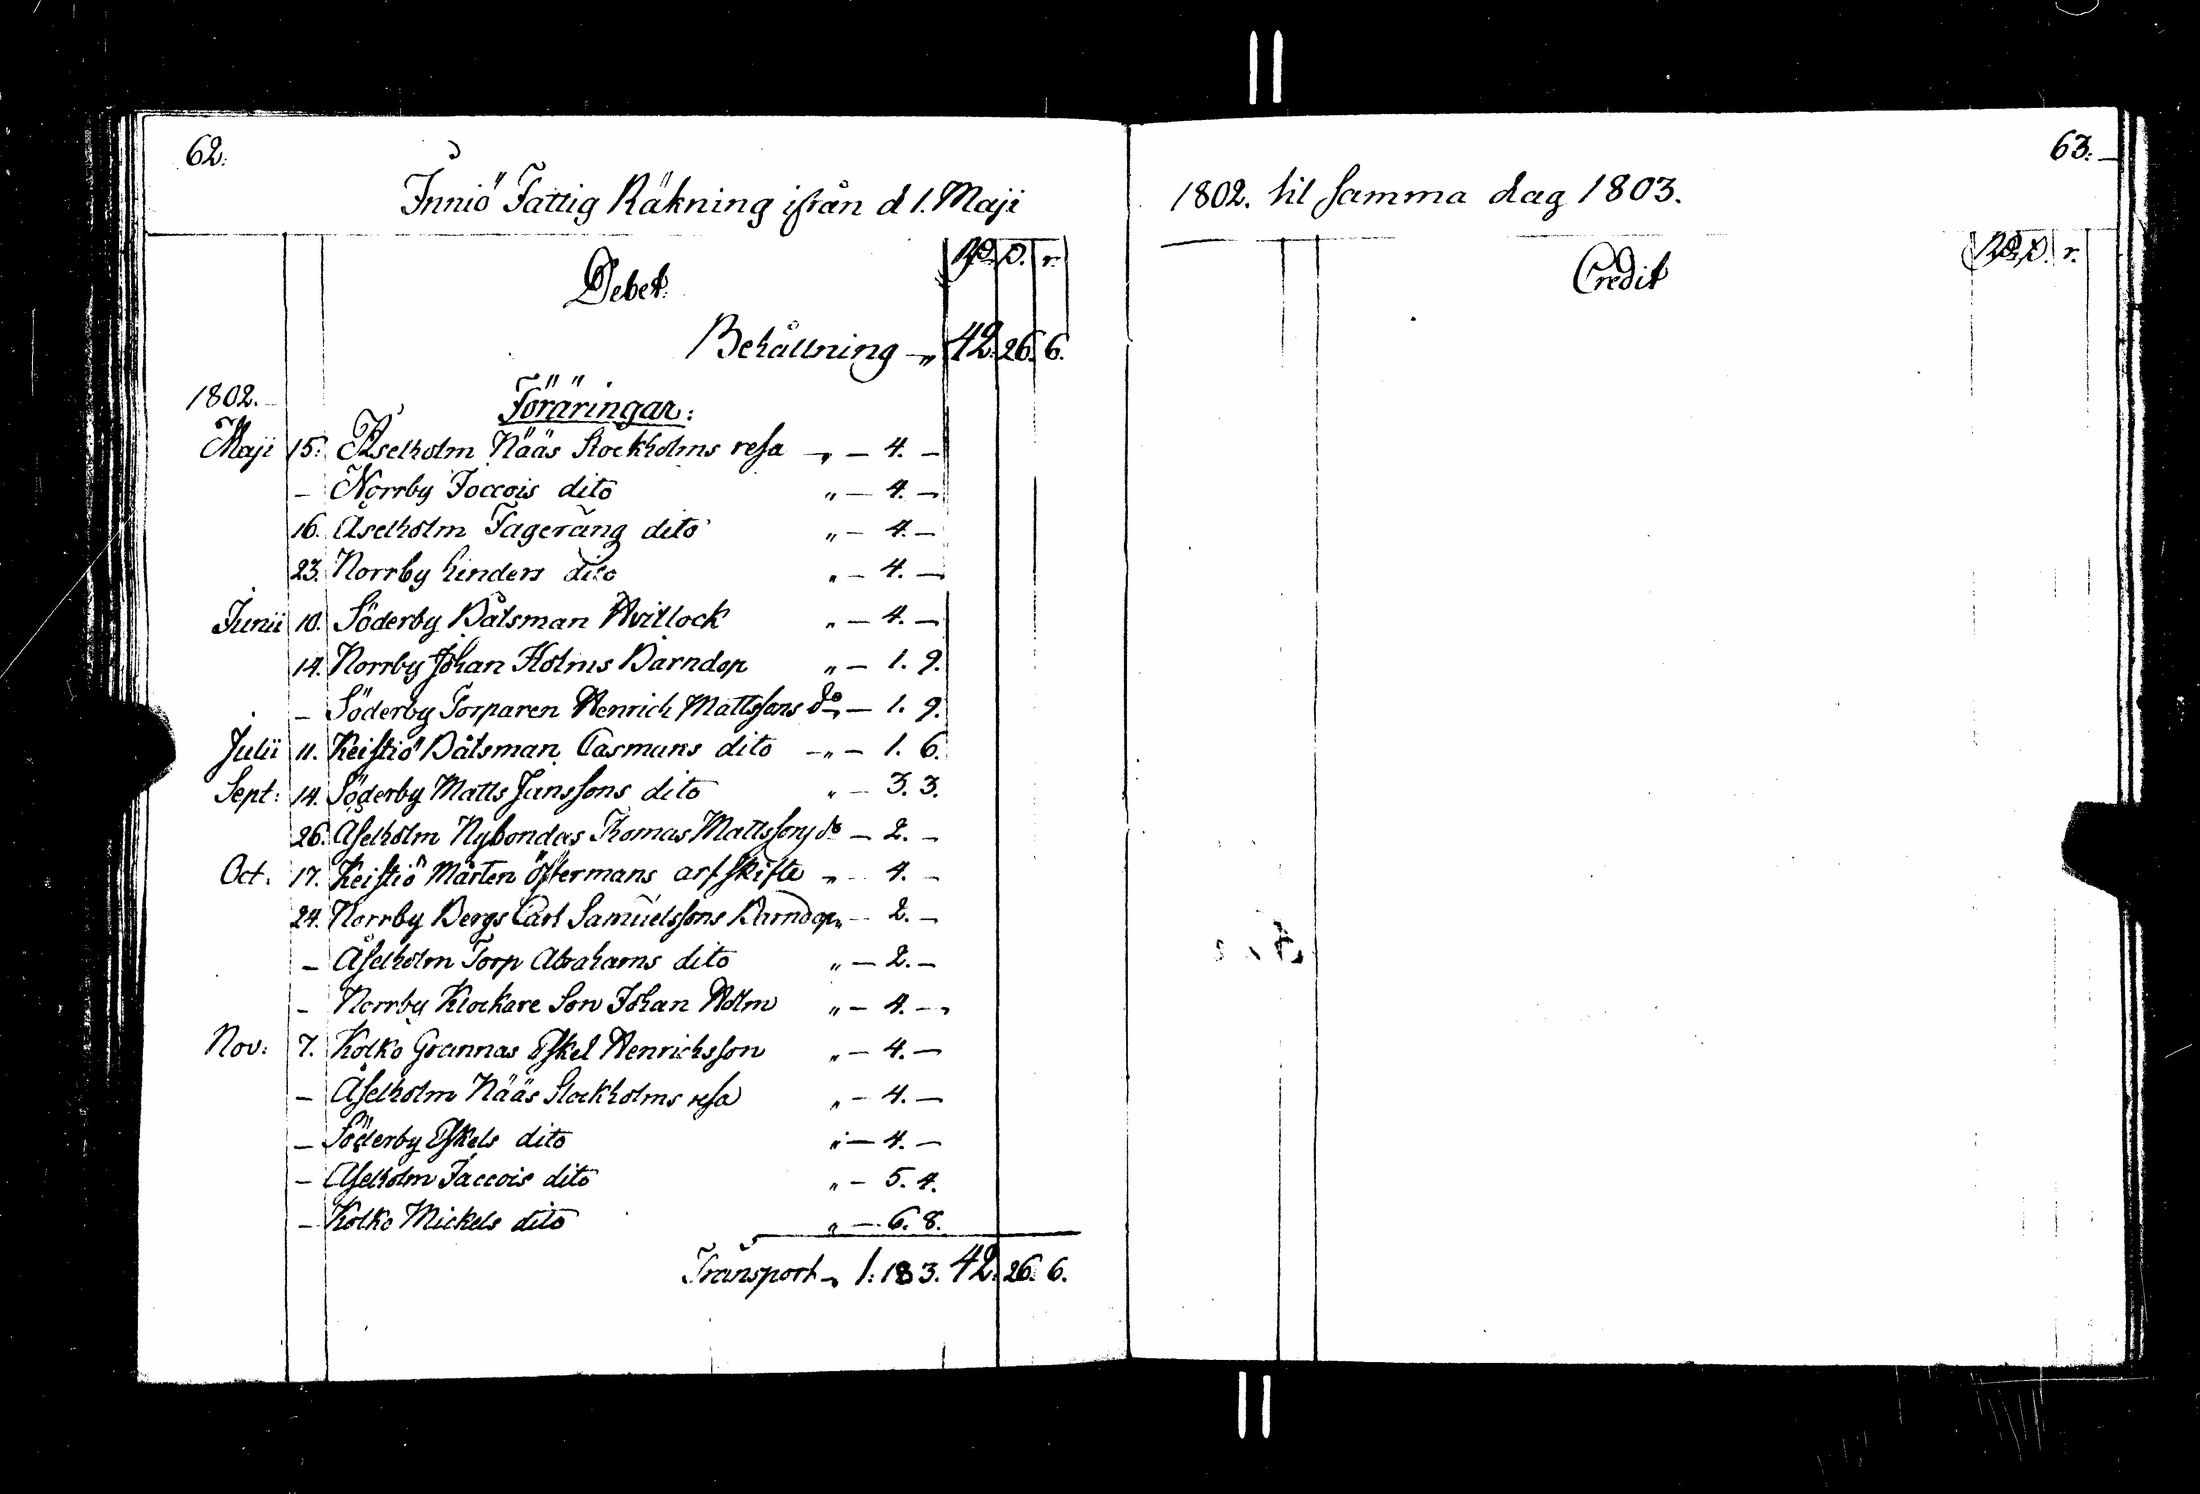 62.
Inniö Fattig Räkning ifrån d 1. Maji
Debet. Rd. s. r.
Behållning — „ 42. 26. 6.
1802.
Föräringar:
Maji 15. Åselholm Nääs Stockholms resa — „ — 4. —
— Norrby Joccois dito „ — 4. —
16. Åselholm Fageräng dito „ — 4. —
23. Norrby Linders dito „ — 4. —
Junii 10. Söderby Båtsman Hvitlock „ — 4. —
14. Norrby Johan Holms Barndop „ — 1. 9.
— Söderby Torparen Henrich Mattssons do — 1. 9.
Julii 11. Keistiö Båtsman Casmans dito — „ — 1. 6.
Sept: 14. Söderby Matts Janssons dito „ — 3. 3.
26. Åselholm Nybondas Thomas Mattssons do — 2. —
Oct. 17. Keistiö Mårten Östermans arfskifte „ — 4. —
24. Norrby Bergs Carl Samuelssons Barndop „ — 2. —
— Åselholm Torp Abrahams dito „ — 2. —
— Norrby Klockare Son Johan Holm „ — 4. —
Nov: 7. Kolko Grannas Eskel Henrichsson „ — 4. —
— Åselholm Nääs Stockholms resa „ — 4. —
— Söderby Eskels dito „ — 4. —
— Åselholm Jaccois dito „ — 5. 4.
— Kolko Mickels dito „ — 6. 8.
Transport — „ 1: 18 3. 42. 26. 6.
63.
1802. til samma dag 1803.
Credit Rd. s. r.